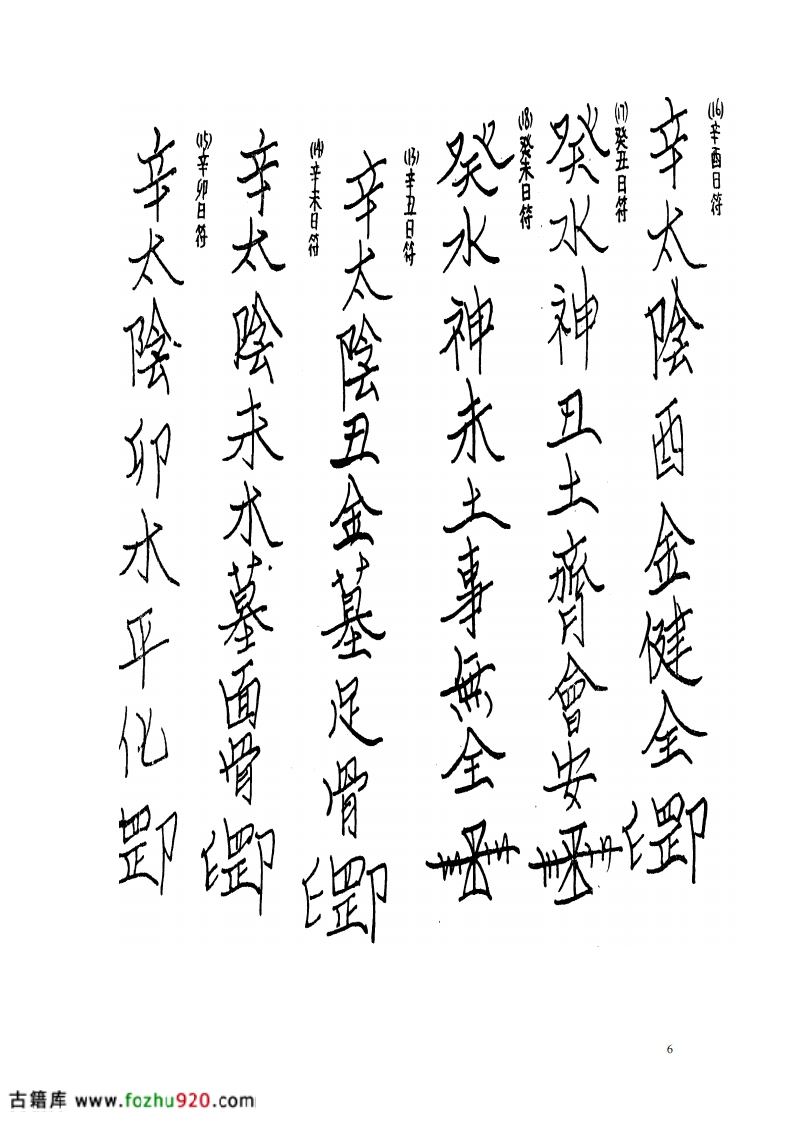 (16)辛酉日符
辛太陰酉金健全
(17)癸丑日符
癸水神丑土齊會安
(18)癸未日符
癸水神未土事無全
(13)辛丑日符
辛太陰丑金墓足骨
(14)辛未日符
辛太陰未木墓面骨
(15)辛卯日符
辛太陰卯木平化
6
古籍库 www.fozhu920.com